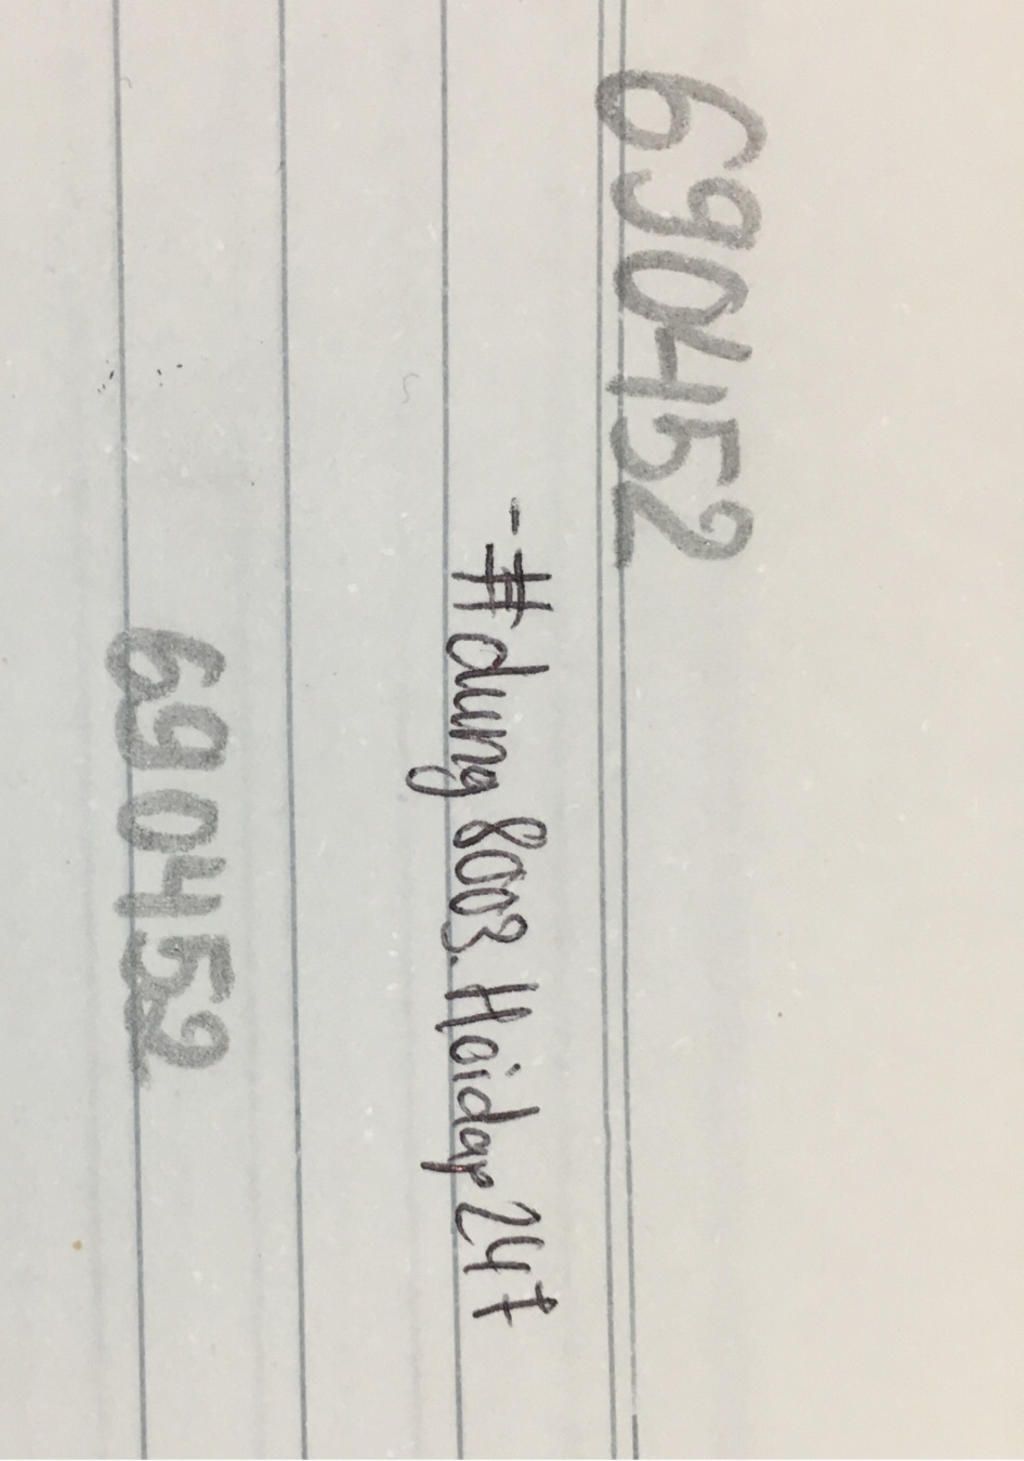 690452
- #dung8003.Hoidap247
690452